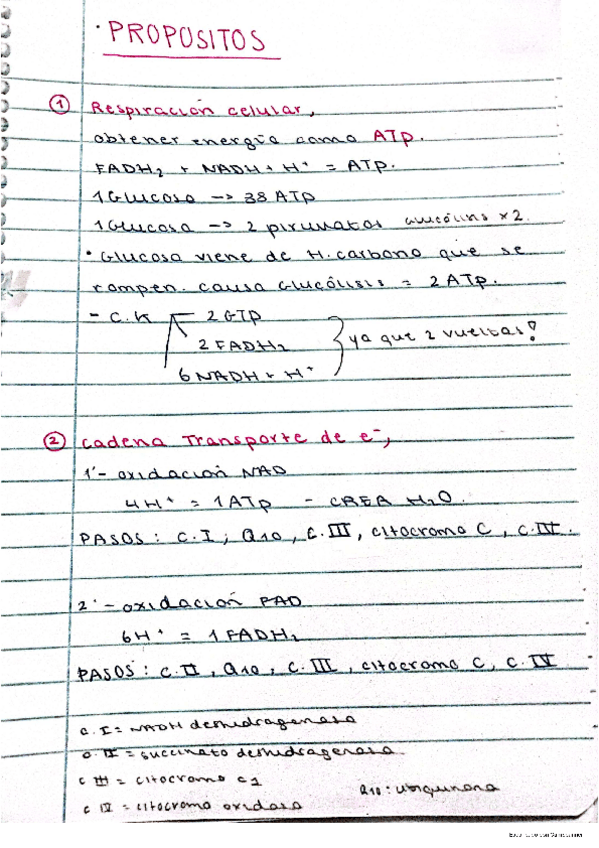 · PROPOSITOS
① Respiración celular,
obtener energía como ATP.
FADH₂ + NADH + H⁺ = ATP.
1 Glucosa -> 38 ATP
1 Glucosa -> 2 piruvatos glucólisis x2.
· Glucosa viene de H. carbono que se
rompen. causa Glucólisis = 2 ATP.
- C.K 2 GTP
2 FADH₂ ya que 2 vueltas!
6 NADH + H⁺
② Cadena Transporte de e⁻,
1'- oxidación NAD
4H⁺ = 1 ATP - CREA H₂O.
PASOS: C.I, Q10, C.III, citocromo C, C.IV.
2'- oxidación FAD
6H⁺ = 1 FADH₂
PASOS: C.II, Q10, C.III, citocromo C, C.IV
C.I = NADH deshidrogenasa
C.II = succinato deshidrogenasa.
C III = citocromo c1
Q10: ubiquinona
C IV = citocromo oxidasa